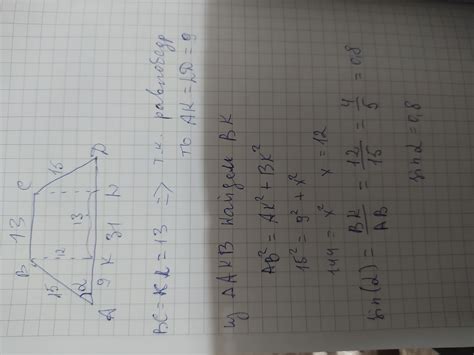 B 13 C
15 12 15
α 13
A 9 K 31 L D
BC = KL = 13 => т.к. равнобедр
то AK = LD = 9
из ΔAKB найдем BK
AB² = AK² + BK²
15² = 9² + x²
144 = x² x = 12
sin(α) = BK/AB = 12/15 = 4/5 = 0,8
sin α = 0,8